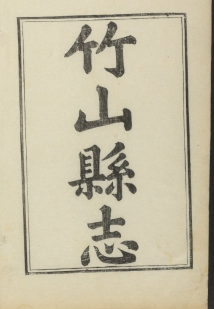 竹山縣志